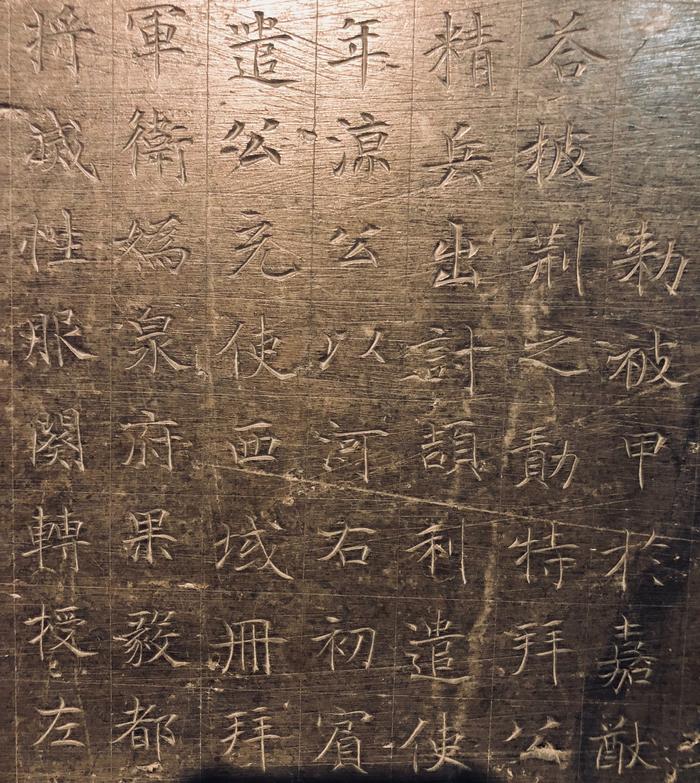 勑被甲於嘉猷
荅披荆之勣特拜公
精兵出討頡利遣使
年涼公以河右初賓
遣公充使西域冊拜
軍衛媯泉府果毅都
將滅性服闋轉授左